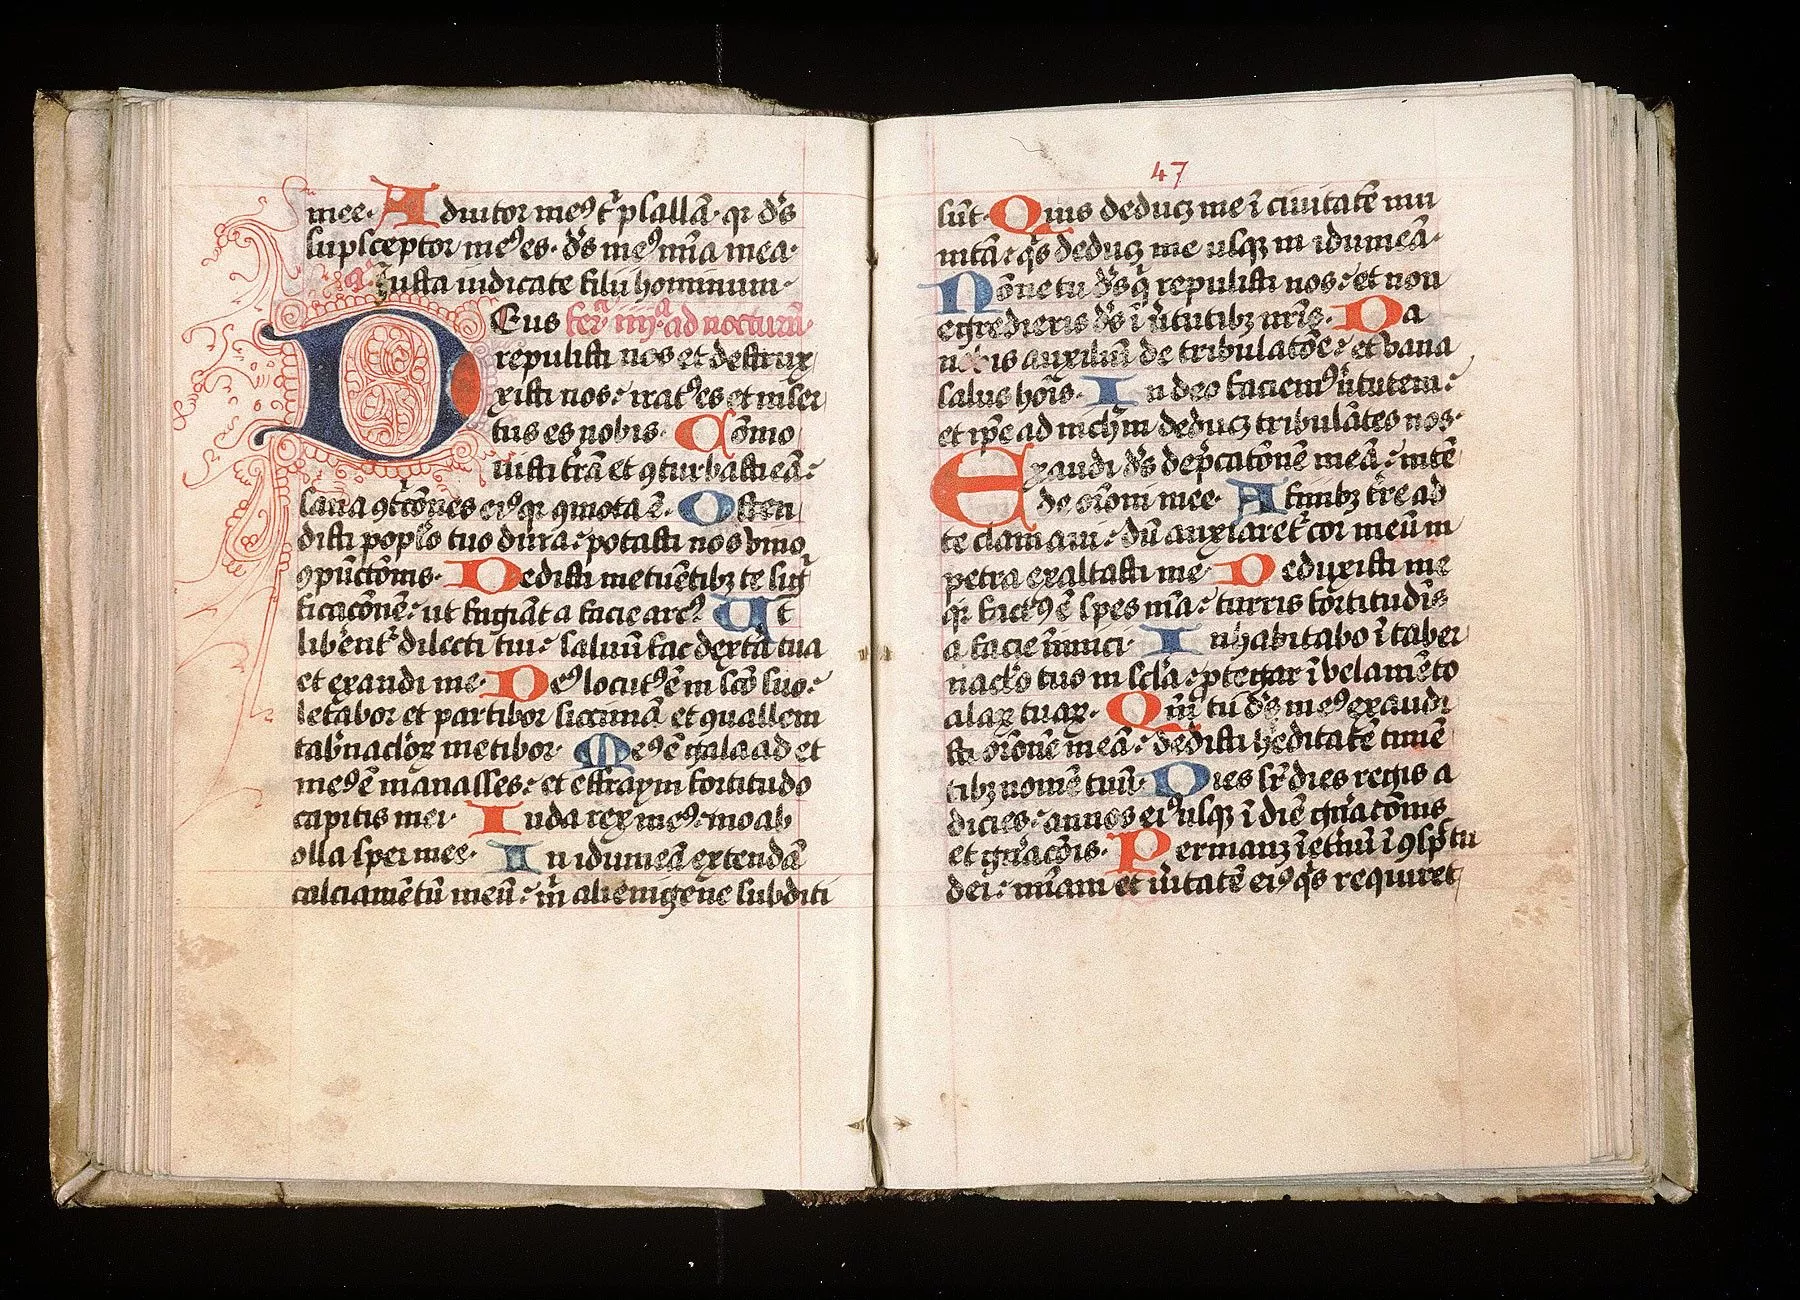 mee. Adiutor me⁹ t' psallā. qr d's
supsceptor me⁹ es. d's me⁹ mīa mea.
a Iusta iudicate filii hominum.
Deus fer iiii ad nocturn̄
repulisti nos et destrux
xisti nos: irat⁹ es et miser
tus es nobis. Cōmo
uisti t'rā et ꝯturbasti eā:
sana ꝯt'cōnes ei⁹ qr ꝯmota ē. Osten
disti pop'lo tuo dura: potasti nos vino
ꝯpūctōnis. Dedisti metuētibȝ te sig
ficacōnē: ut fugiāt a facie arc⁹ Ut
lib'ent' dilecti tui: saluū fac dext'a tua
et exaudi me. De⁹ locut⁹ ē in sc̄o suo:
letabor et partibor siccimā et ꝯuallem
tab'naclo'ꝝ metibor. Me⁹ ē galaad et
me⁹ ē manasses: et effraym fortitudo
capitis mei. Iuda rex me⁹: moab
olla spei mee. In idumeā extendā
calciamētū meū: m̄ alienigene subditi
47
sūt. Quis deducȝ me ī ciuitatē mu
nitā: q's deducȝ me usqȝ in idumeā.
Nōne tu d's q' repulisti nos: et non
egredieris d's ī v'tutibȝ nr̄is. Da
nobis auxiliū de tribulacōe: et vana
salus ho'is. In deo faciem⁹ v'tutem:
et ip̄e ad nich'm deducȝ tribulātes nos.
Exaudi d's dep'catōnē meā: intē
de or̄oni mee. A finibȝ t're ad
te clamaui: dū anxiaret' cor meū in
petra exaltasti me. Deduxisti me
qr fact⁹ ē spes m̄a: turris fortitudīs
a facie īimici. Inhabitabo ī taber
naclo' tuo in sc'la: ptegar ī velamēto
alaꝝ tuaꝝ. Qm̄ tu d's me⁹ exaudi
sti or̄onē meā: dedisti h'editatē timē
tibȝ nomē tuū. Dies sr̄ dies regis a
dicies: annos ei⁹ usqȝ ī diē gn̄acōnis
et gn̄acōis. Permanȝ īet'nū ī ꝯsp̄tu
dei: mīam et v'itatē ei⁹ q's requiret